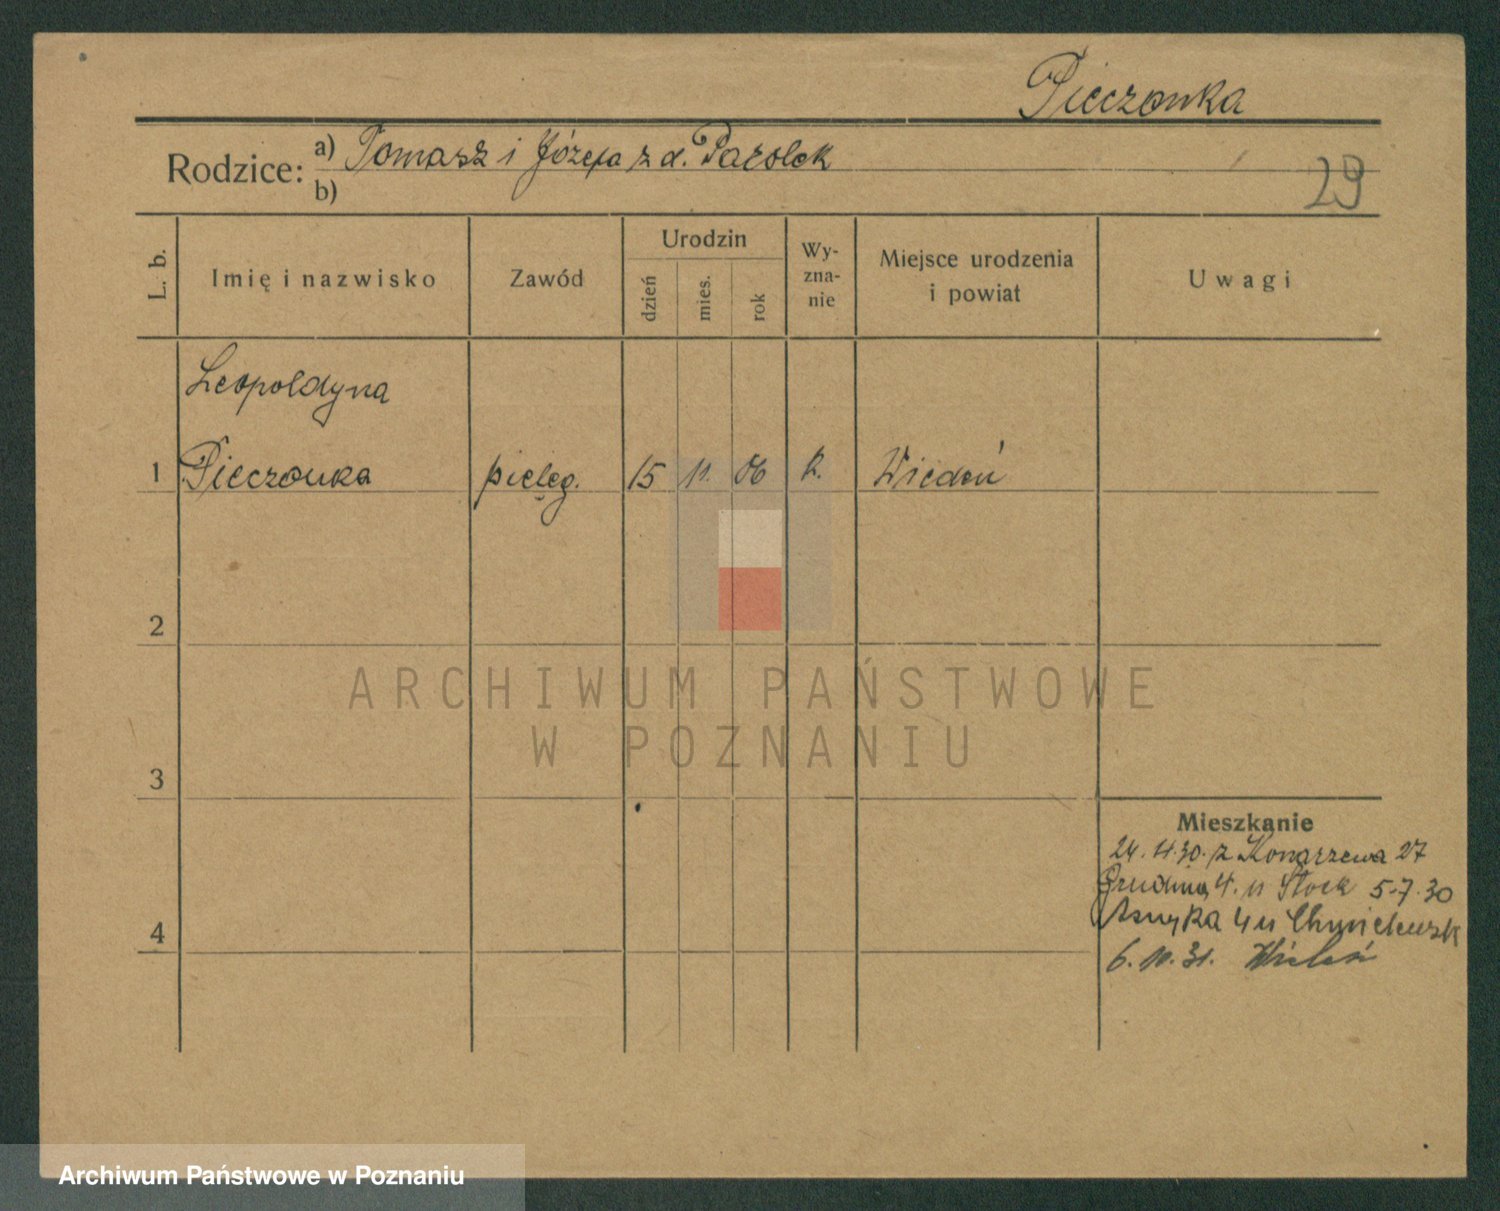 Pieczonka
Rodzice: a) Tomasz i Józefa z d. Parolek
b)
29
L. b.
Imię i nazwisko
Zawód
Urodzin
dzień
mies.
rok
Wy-
zna-
nie
Miejsce urodzenia
i powiat
Uwagi
Leopoldyna
1 Pieczonka pielęg. 15 11. 06 k. Wiedeń
2
ARCHIWUM PAŃSTWOWE
W POZNANIU
3
Mieszkanie
24. 4.30. z Konarzewa 27
4. u Stock 5.7.30
Asnyka 4 u
4
6. 11. 31.
Archiwum Państwowe w Poznaniu